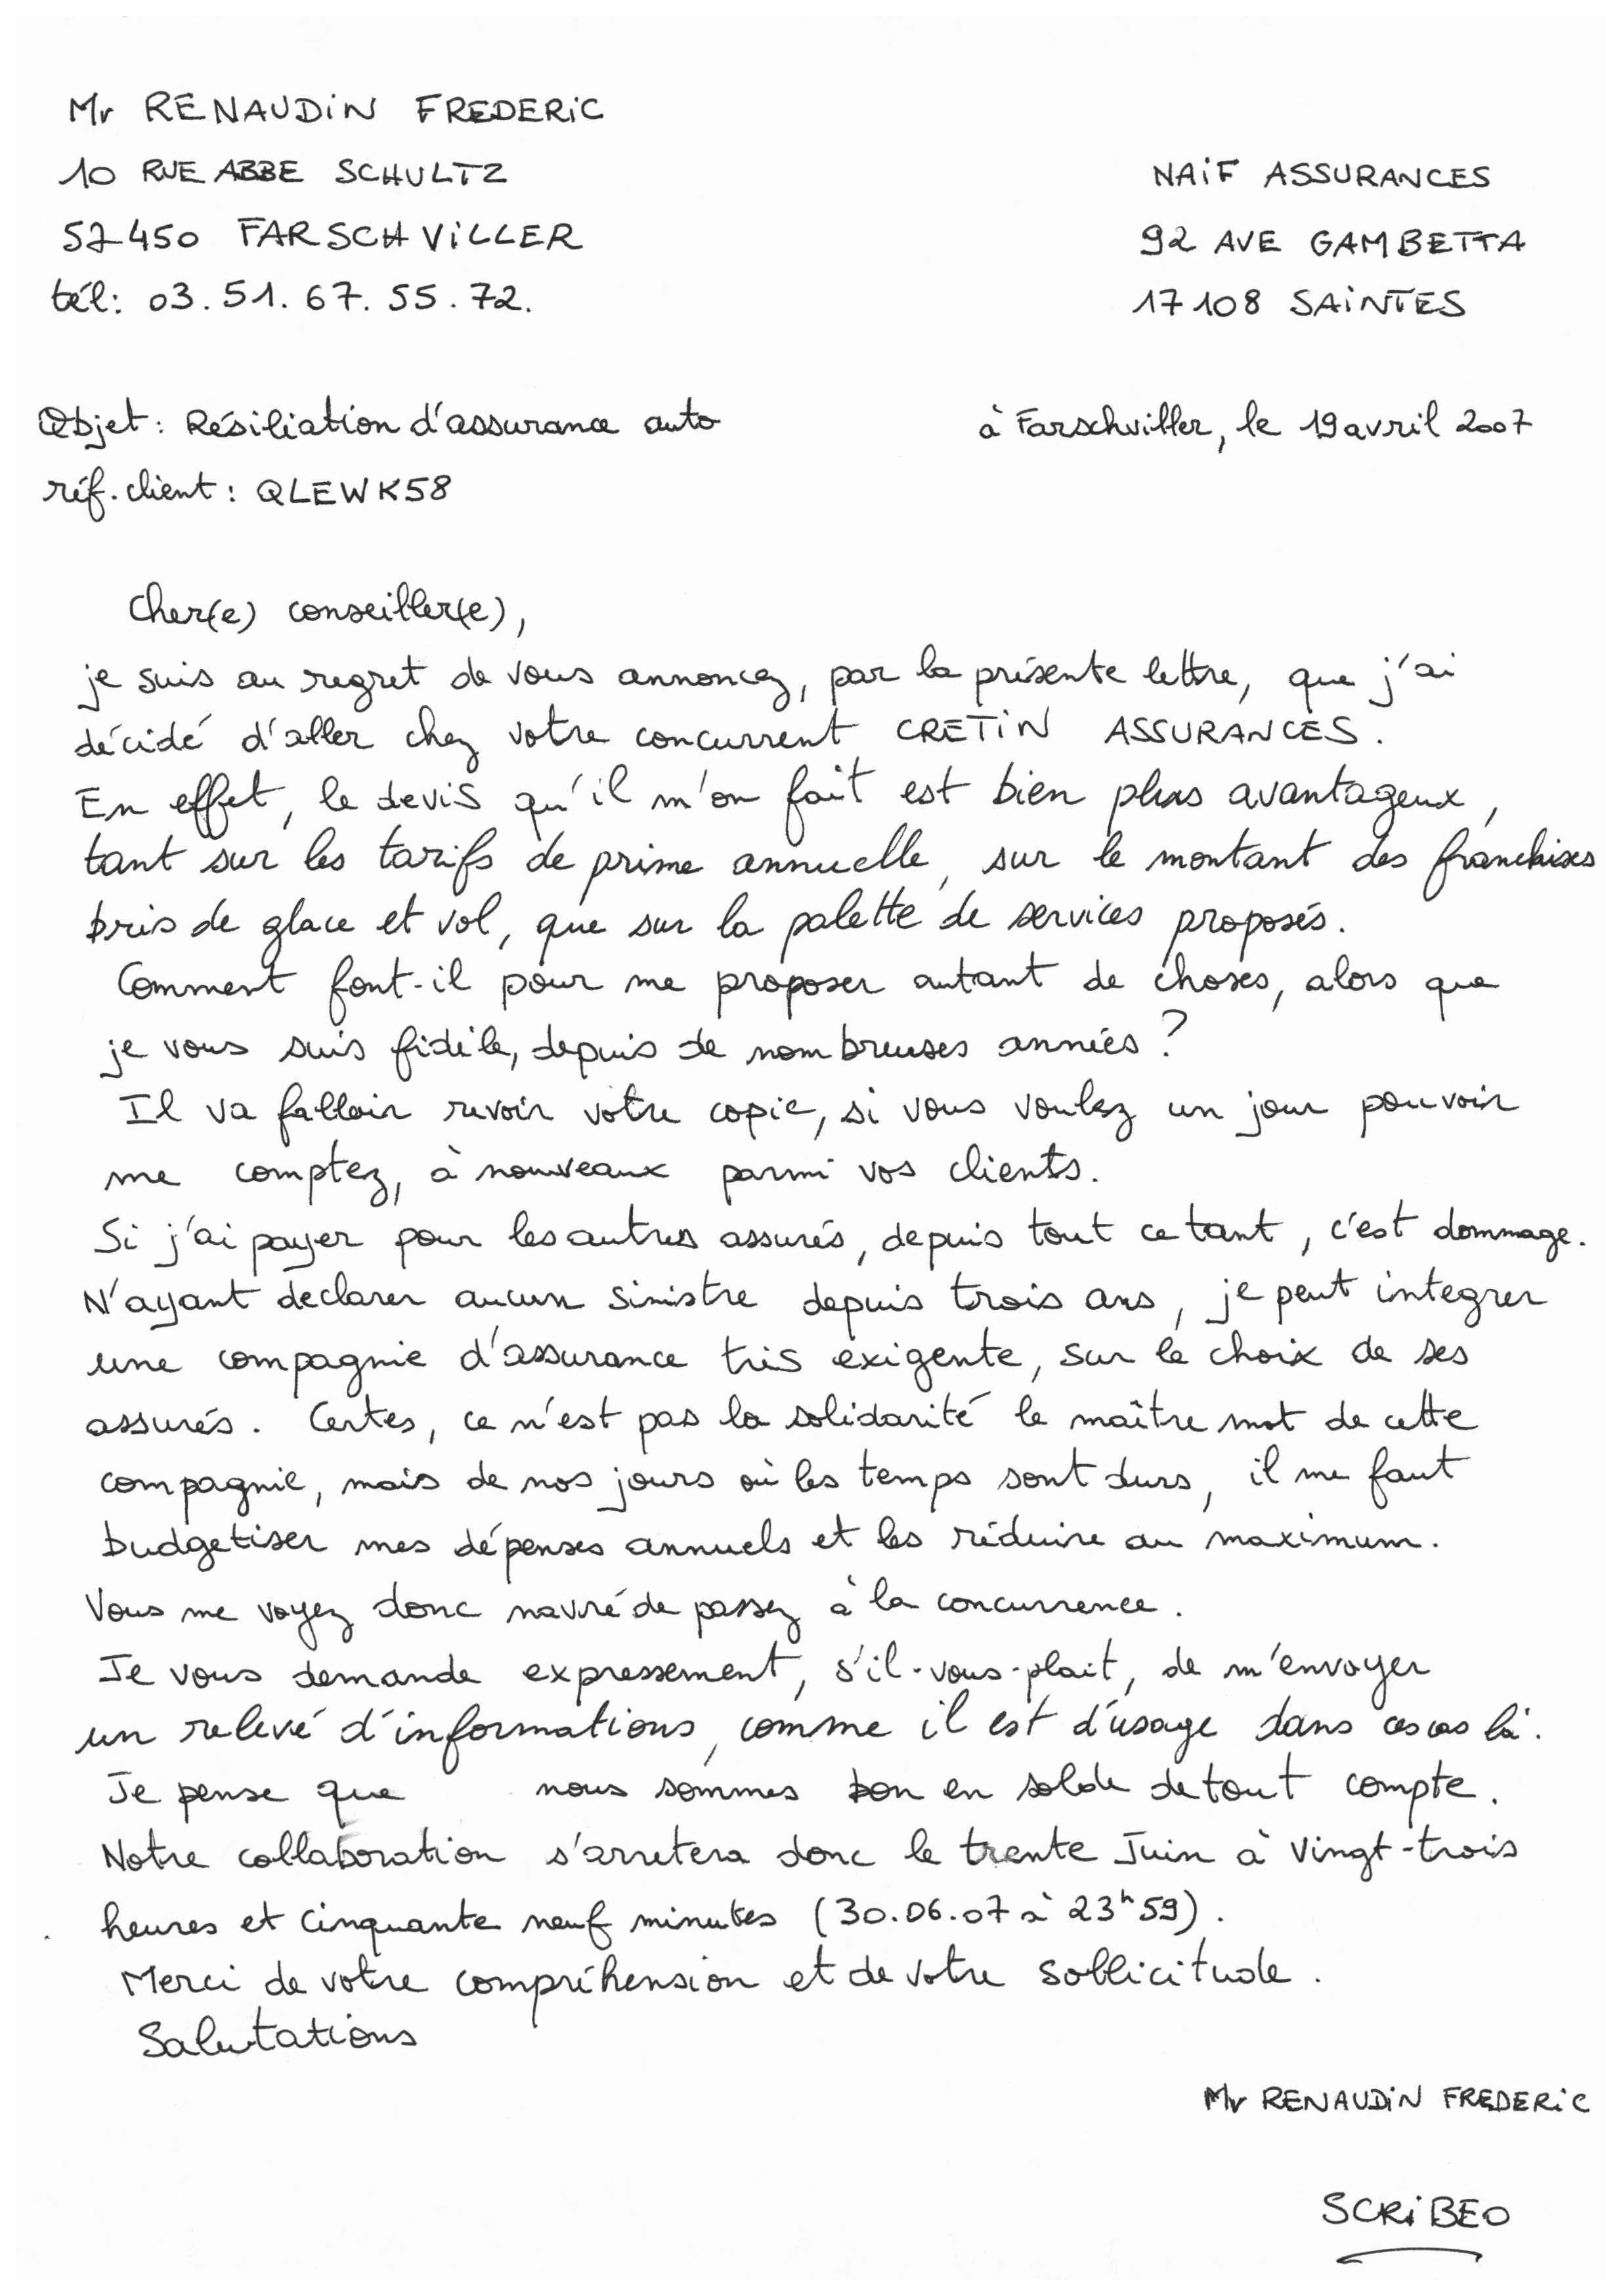 Mr RENAUDIN FREDERIC
10 RUE ABBE SCHULTZ
57450 FARSCHVILLER
tél: 03.51.67.55.72.
NAIF ASSURANCES
92 AVE GAMBETTA
17108 SAINTES
Objet: Résiliation d'assurance auto
réf. client: QLEWK58
à Farschviller, le 19 avril 2007
Cher(e) conseiller(e),
je suis au regret de vous annoncez, par la présente lettre, que j'ai
décidé d'aller chez votre concurrent CRETIN ASSURANCES.
En effet, le devis qu'il m'on fait est bien plus avantageux,
tant sur les tarifs de prime annuelle, sur le montant des franchises
bris de glace et vol, que sur la palette de services proposés.
Comment font-il pour me proposer autant de choses, alors que
je vous suis fidèle, depuis de nombreuses années?
Il va falloir revoir votre copie, si vous voulez un jour pouvoir
me comptez, à nouveaux parmi vos clients.
Si j'ai payer pour les autres assurés, depuis tout ce tant, c'est dommage.
N'ayant declarer aucun sinistre depuis trois ans, je peut integrer
une compagnie d'assurance très exigente, sur le choix de ses
assurés. Certes, ce n'est pas la solidarité le maître mot de cette
compagnie, mais de nos jours où les temps sont durs, il me faut
budgetiser mes dépenses annuels et les réduire au maximum.
Vous me voyez donc navré de passez à la concurrence.
Je vous demande expressement, s'il-vous-plait, de m'envoyer
un relevé d'informations, comme il est d'usage dans ces cas là.
Je pense que nous sommes bon en solde de tout compte.
Notre collaboration s'arretera donc le trente Juin à vingt-trois
heures et cinquante neuf minutes (30.06.07 à 23h59).
Merci de votre compréhension et de votre sollicitude.
Salutations
Mr RENAUDIN FREDERIC
SCRIBEO